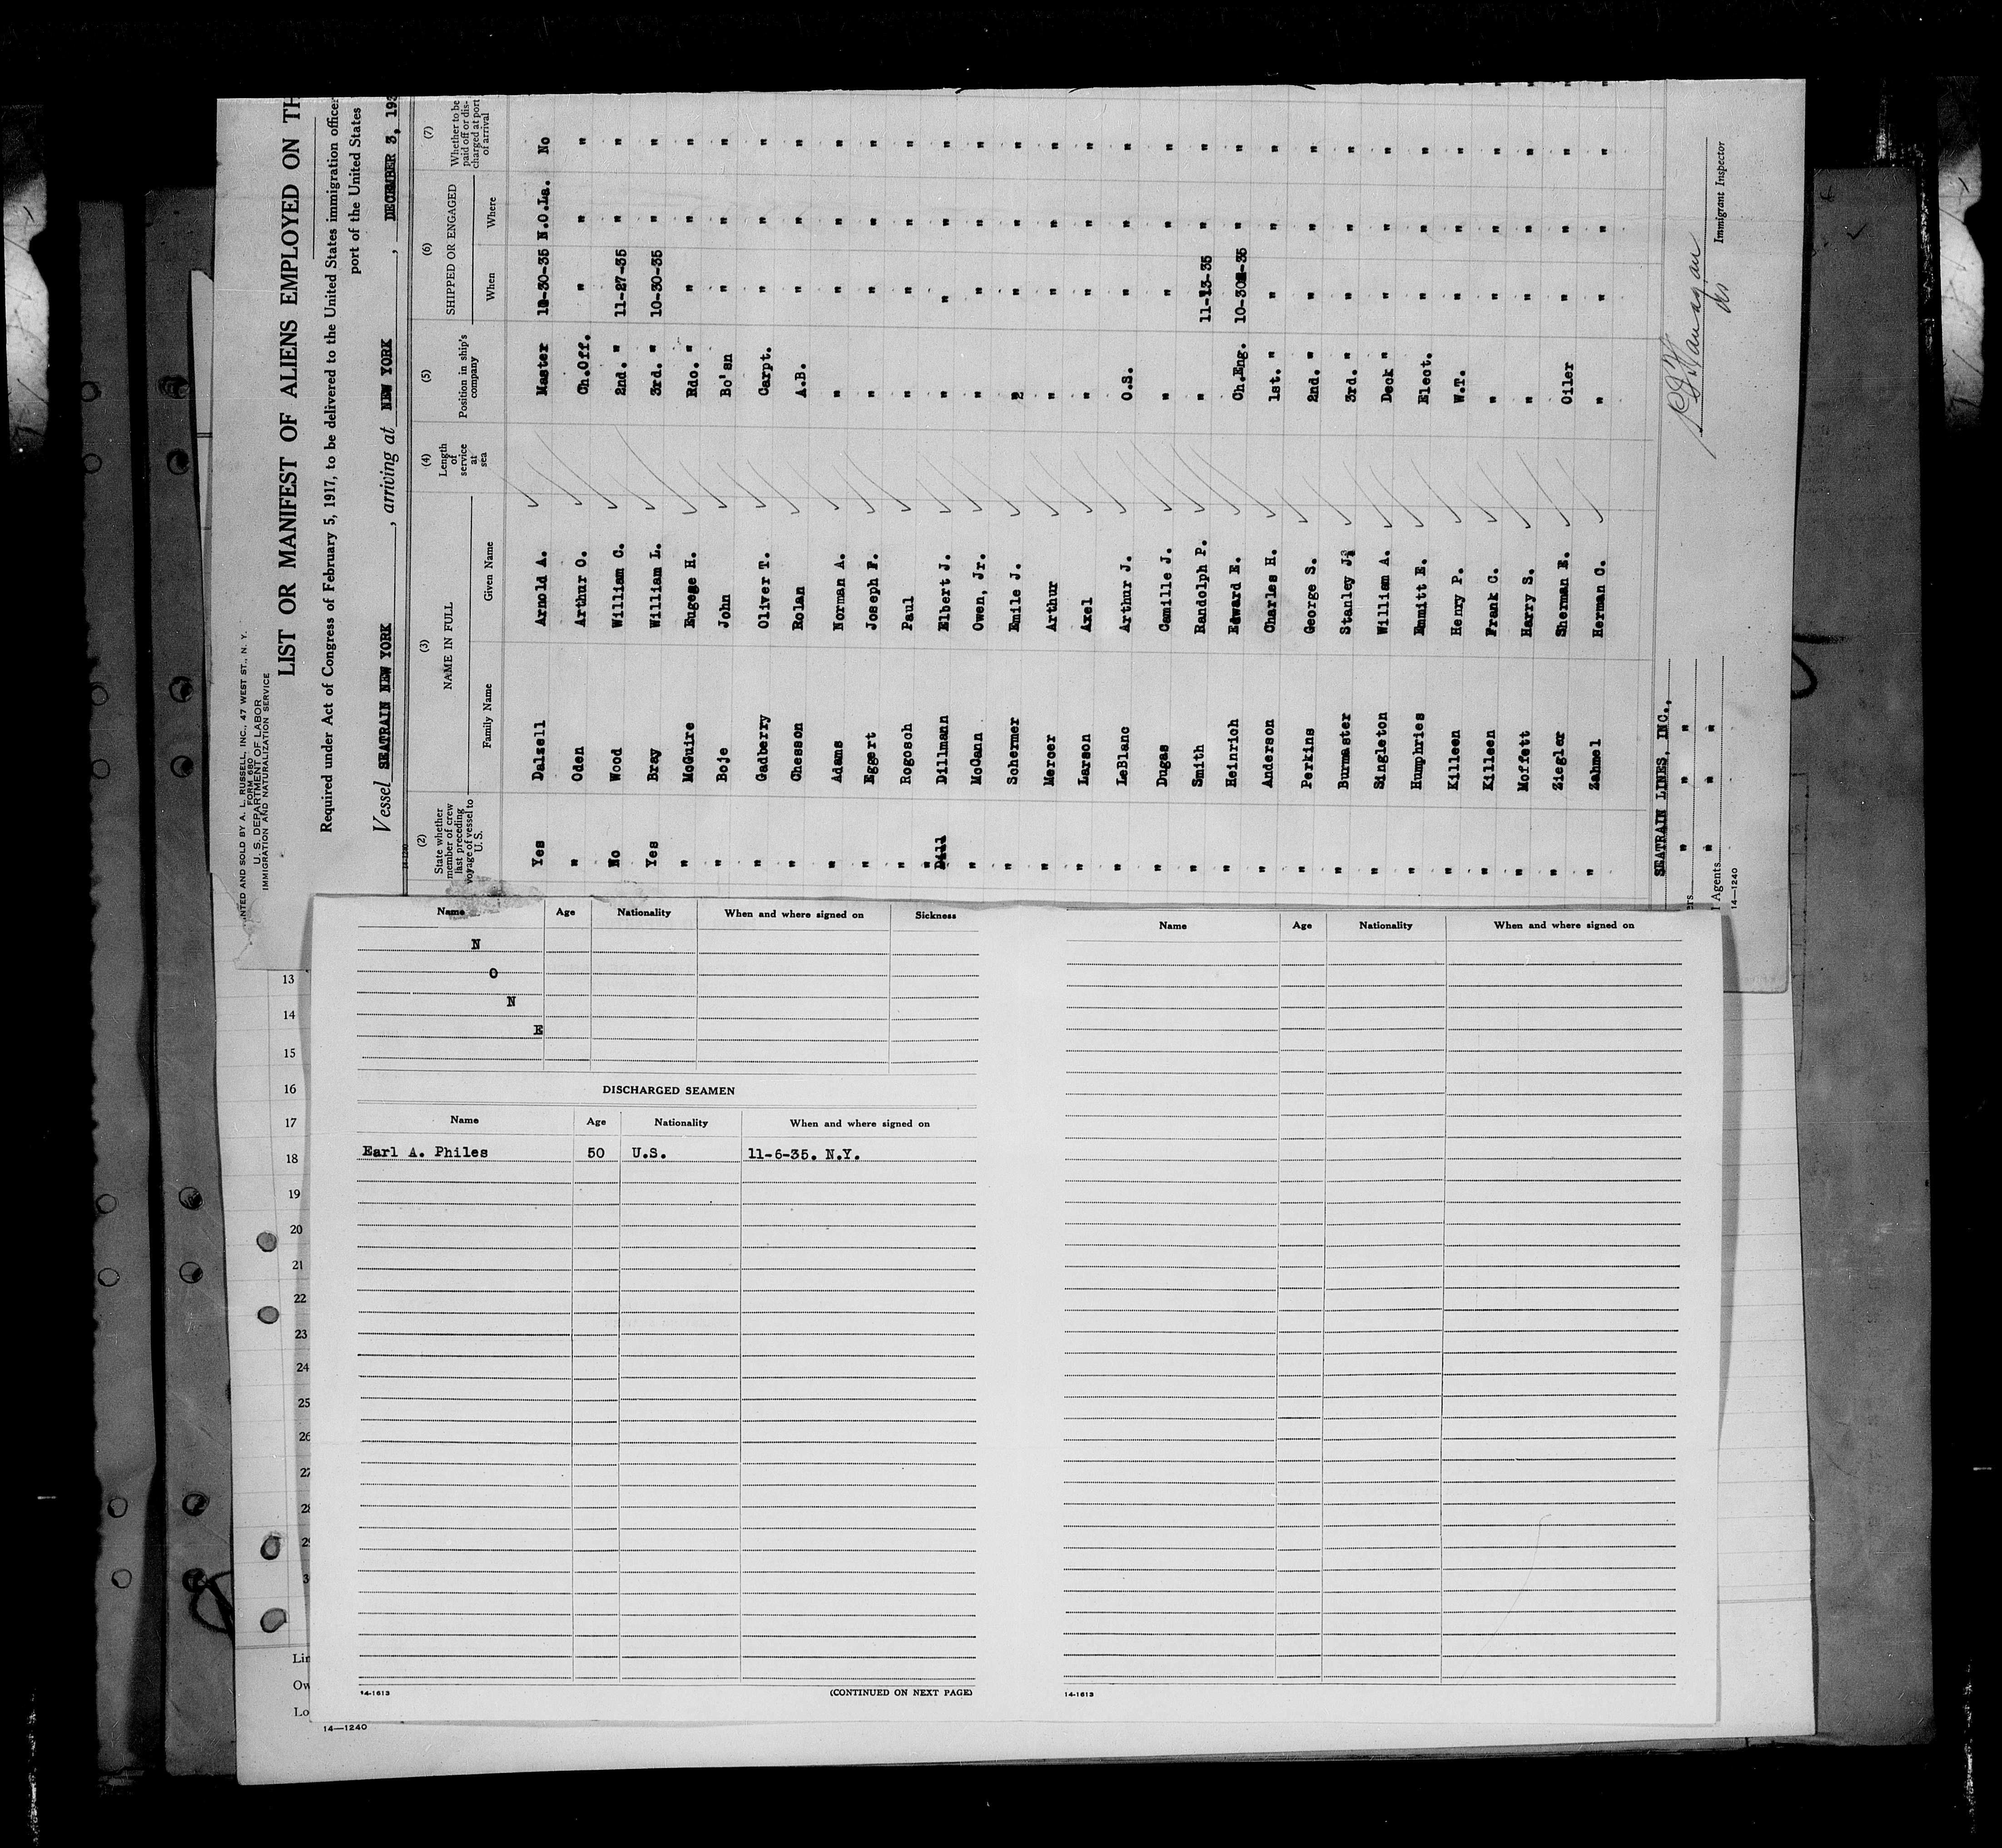 PRINTED AND SOLD BY A. L. RUSSELL, INC., 47 WEST ST., N. Y.
FORM 680
U. S. DEPARTMENT OF LABOR
IMMIGRATION AND NATURALIZATION SERVICE
LIST OR MANIFEST OF ALIENS EMPLOYED ON TH
Required under Act of Congress of February 5, 1917, to be delivered to the United States immigration officer
port of the United States
Vessel SEATRAIN NEW YORK, arriving at NEW YORK, DECEMBER 3, 193
14-1240
(2) (3) (4) (5) (6) (7)
State whether member of crew last preceding voyage of vessel to U. S. NAME IN FULL Length of service at sea Position in ship's company SHIPPED OR ENGAGED Whether to be paid off or discharged at port of arrival
Family Name Given Name When Where
Yes Dalzell Arnold A. Master 10-30-35 N.O.La. No
" Oden Arthur O. Ch.Off. " " "
No Wood William C. 2nd. " 11-27-35 " "
Yes Bray William L. 3rd. " 10-30-35 " "
" McGuire Eugege H. Rdo. " " " "
" Boje John Bo'sn " " "
" Gadberry Oliver T. Carpt. " " "
" Chesson Rolan A.B. " " "
" Adams Norman A. " " " "
" Eggert Joseph F. " " " "
" Rogosch Paul " " " "
" Dill Dillmann Elbert J. " " " "
" McGann Owen, Jr. " " " "
" Schermer Emile J. " " " "
" Mercer Arthur " " " "
" Larson Axel " " " "
" LeBlanc Arthur J. O.S. " " "
" Dugas Camille J. " " " "
" Smith Randolph P. " 11-13-35 " "
" Heinrich Edward E. Ch.Eng. 10-30-35 " "
" Anderson Charles H. 1st. " " " "
" Perkins George S. 2nd. " " " "
" Burmaster Stanley J. 3rd. " " " "
" Singleton William A. Deck " " " "
" Humphries Emmitt E. Elect. " " "
" Killeen Henry P. W.T. " " "
" Killeen Frank C. " " " "
" Moffett Harry S. " " " "
" Ziegler Sherman E. Oiler " " "
" Zahmel Herman C. " " " "
SEATRAIN LINES, INC.,
" " "
Agents " " "
Immigrant Inspector
14-1240
Name Age Nationality When and where signed on Sickness
N
O
N
E
DISCHARGED SEAMEN
Name Age Nationality When and where signed on
Earl A. Philes 50 U.S. 11-6-35. N.Y.
14-1613
(CONTINUED ON NEXT PAGE)
Name Age Nationality When and where signed on
14-1613
13
14
15
16
17
18
19
20
21
22
23
24
25
26
27
28
Lin
Ow
Lo
14—1240